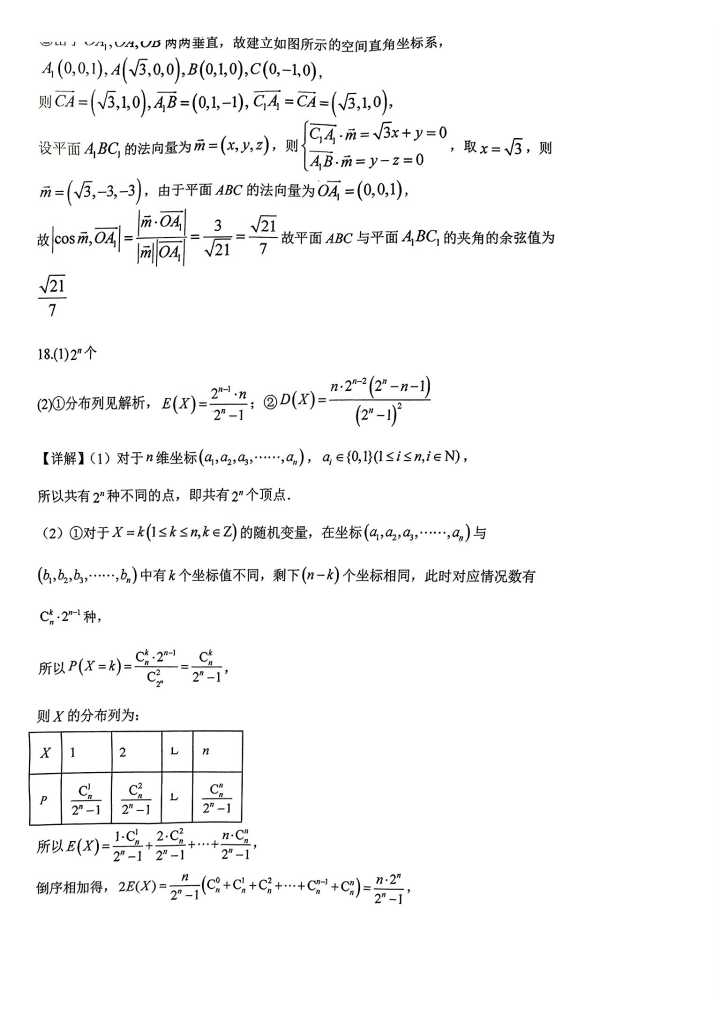 两两垂直，故建立如图所示的空间直角坐标系，
A₁(0,0,1), A(√3,0,0), B(0,1,0), C(0,−1,0)，
则 CA⃗ = (√3,1,0), A₁B⃗ = (0,1,−1), C₁A₁⃗ = CA⃗ = (√3,1,0)，
设平面 A₁BC₁ 的法向量为 m⃗ = (x,y,z)，则 { C₁A₁⃗·m⃗ = √3x + y = 0 ; A₁B⃗·m⃗ = y − z = 0 ，取 x = √3，则
m⃗ = (√3,−3,−3)，由于平面 ABC 的法向量为 OA₁⃗ = (0,0,1)，
故 |cos m⃗, OA₁⃗| = |m⃗·OA₁⃗| / |m⃗||OA₁⃗| = 3/√21 = √21/7 故平面 ABC 与平面 A₁BC₁ 的夹角的余弦值为
√21/7
18.(1) 2ⁿ 个
(2)①分布列见解析，E(X) = (2ⁿ⁻¹·n)/(2ⁿ−1)；②D(X) = n·2ⁿ⁻²(2ⁿ−n−1)/(2ⁿ−1)²
【详解】（1）对于 n 维坐标 (a₁,a₂,a₃,……,aₙ)，aᵢ ∈ {0,1}(1 ≤ i ≤ n, i ∈ N)，
所以共有 2ⁿ 种不同的点，即共有 2ⁿ 个顶点．
（2）①对于 X = k(1 ≤ k ≤ n, k ∈ Z) 的随机变量，在坐标 (a₁,a₂,a₃,……,aₙ) 与
(b₁,b₂,b₃,……,bₙ) 中有 k 个坐标值不同，剩下 (n−k) 个坐标相同，此时对应情况数有
Cₙᵏ·2ⁿ⁻¹ 种，
所以 P(X = k) = (Cₙᵏ·2ⁿ⁻¹)/C²_{2ⁿ} = Cₙᵏ/(2ⁿ−1)，
则 X 的分布列为：
X 1 2 L n
P Cₙ¹/(2ⁿ−1) Cₙ²/(2ⁿ−1) L Cₙⁿ/(2ⁿ−1)
所以 E(X) = 1·Cₙ¹/(2ⁿ−1) + 2·Cₙ²/(2ⁿ−1) + ⋯ + n·Cₙⁿ/(2ⁿ−1)，
倒序相加得，2E(X) = n/(2ⁿ−1) (Cₙ⁰ + Cₙ¹ + Cₙ² + ⋯ + Cₙⁿ⁻¹ + Cₙⁿ) = n·2ⁿ/(2ⁿ−1)，